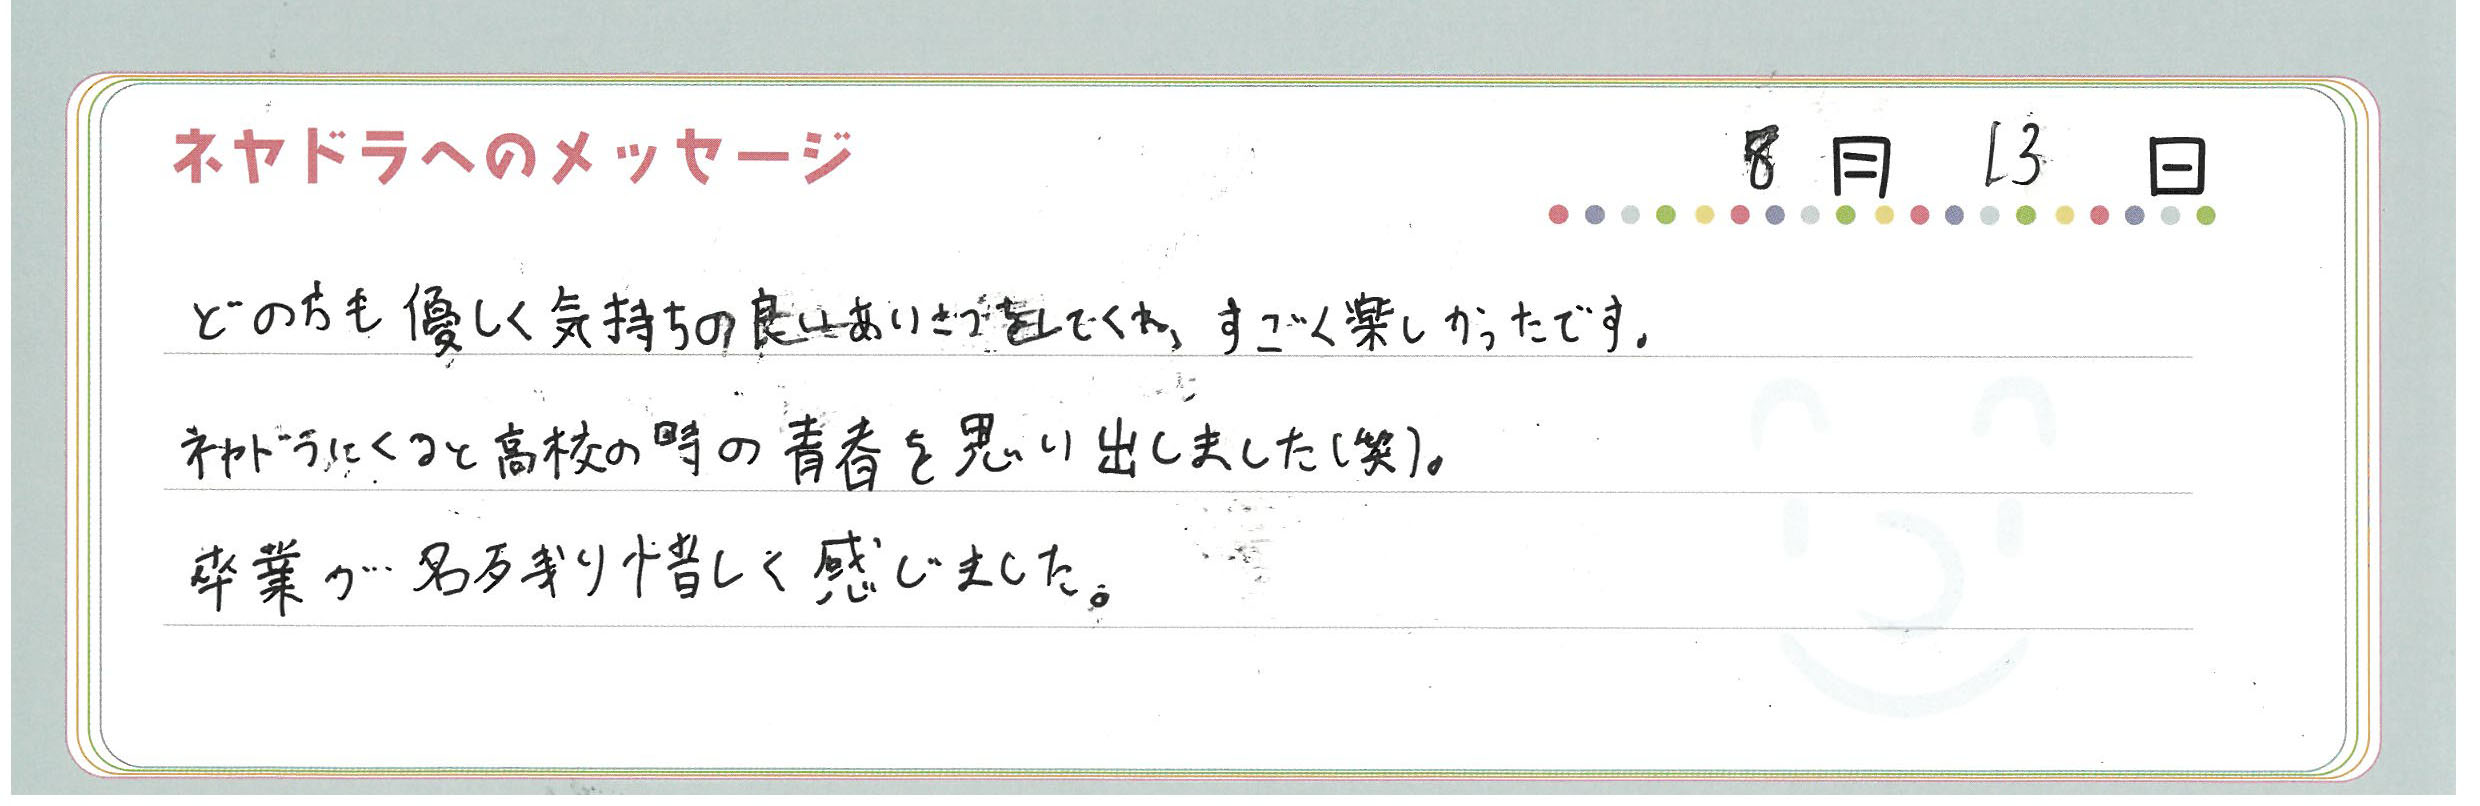 ネヤドラへのメッセージ
8月 13 日
どの方も優しく気持ちの良いあいさつをしてくれ、すごく楽しかったです。
ネヤドラにくると高校の時の青春を思い出しました(笑)。
卒業が名残り惜しく感じました。